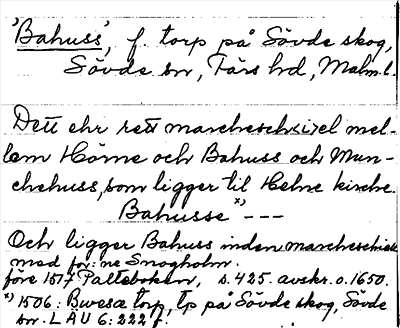 'Bahuss', f. torp på Sövde skog,
Sövde sn, Färs hd, Malm.l.
Dett ehr rett marcheschiel mel-
lem Hörne och Bahuss och Mun-
chehuss, som ligger til Helne kirche.
Bahusse *) ---
Och ligger Bahuss inden marcheschiel
med for:ne Snogholm.
före 1577 Palteboken, s. 425. avskr. o. 1650.
*) 1506: Bwesæ torp, tp på Sövde skog, Sövde
sn. LÄU 6:222 f.